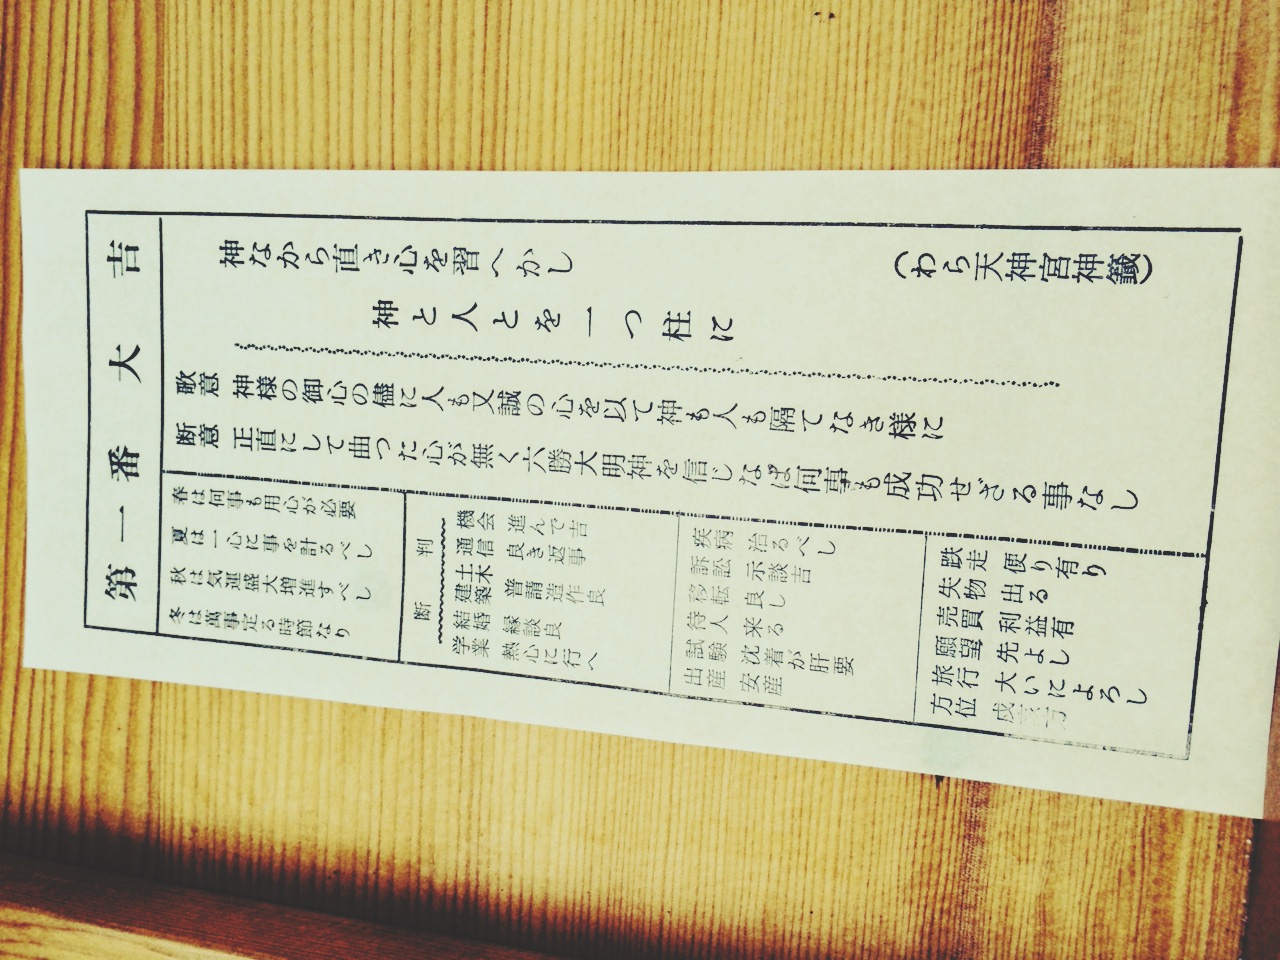 第一番大吉
神ながら直き心を習へかし
(わら天神宮神籤)
神と人とを一つ柱に
歌意 神様の御心の儘に人も又誠の心を以て神も人も隔てなき様に
断意 正直にして曲った心が無く六勝大明神を信じなば何事も成功せざる事なし
春は何事も用心が必要
夏は一心に事を計るべし
秋は気運盛大増進すべし
冬は萬事定る時節なり
判断
機会 進んで吉
通信 良き返事
土木建築 普請造作良
結婚 縁談良
学業 熱心に行へ
疾病 治るべし
訴訟 示談吉
移転 良し
待人 来る
試験 沈着が肝要
出産 安産
跌走 便り有り
失物 出る
売買 利益有
願望 先よし
旅行 大いによろし
方位 戌